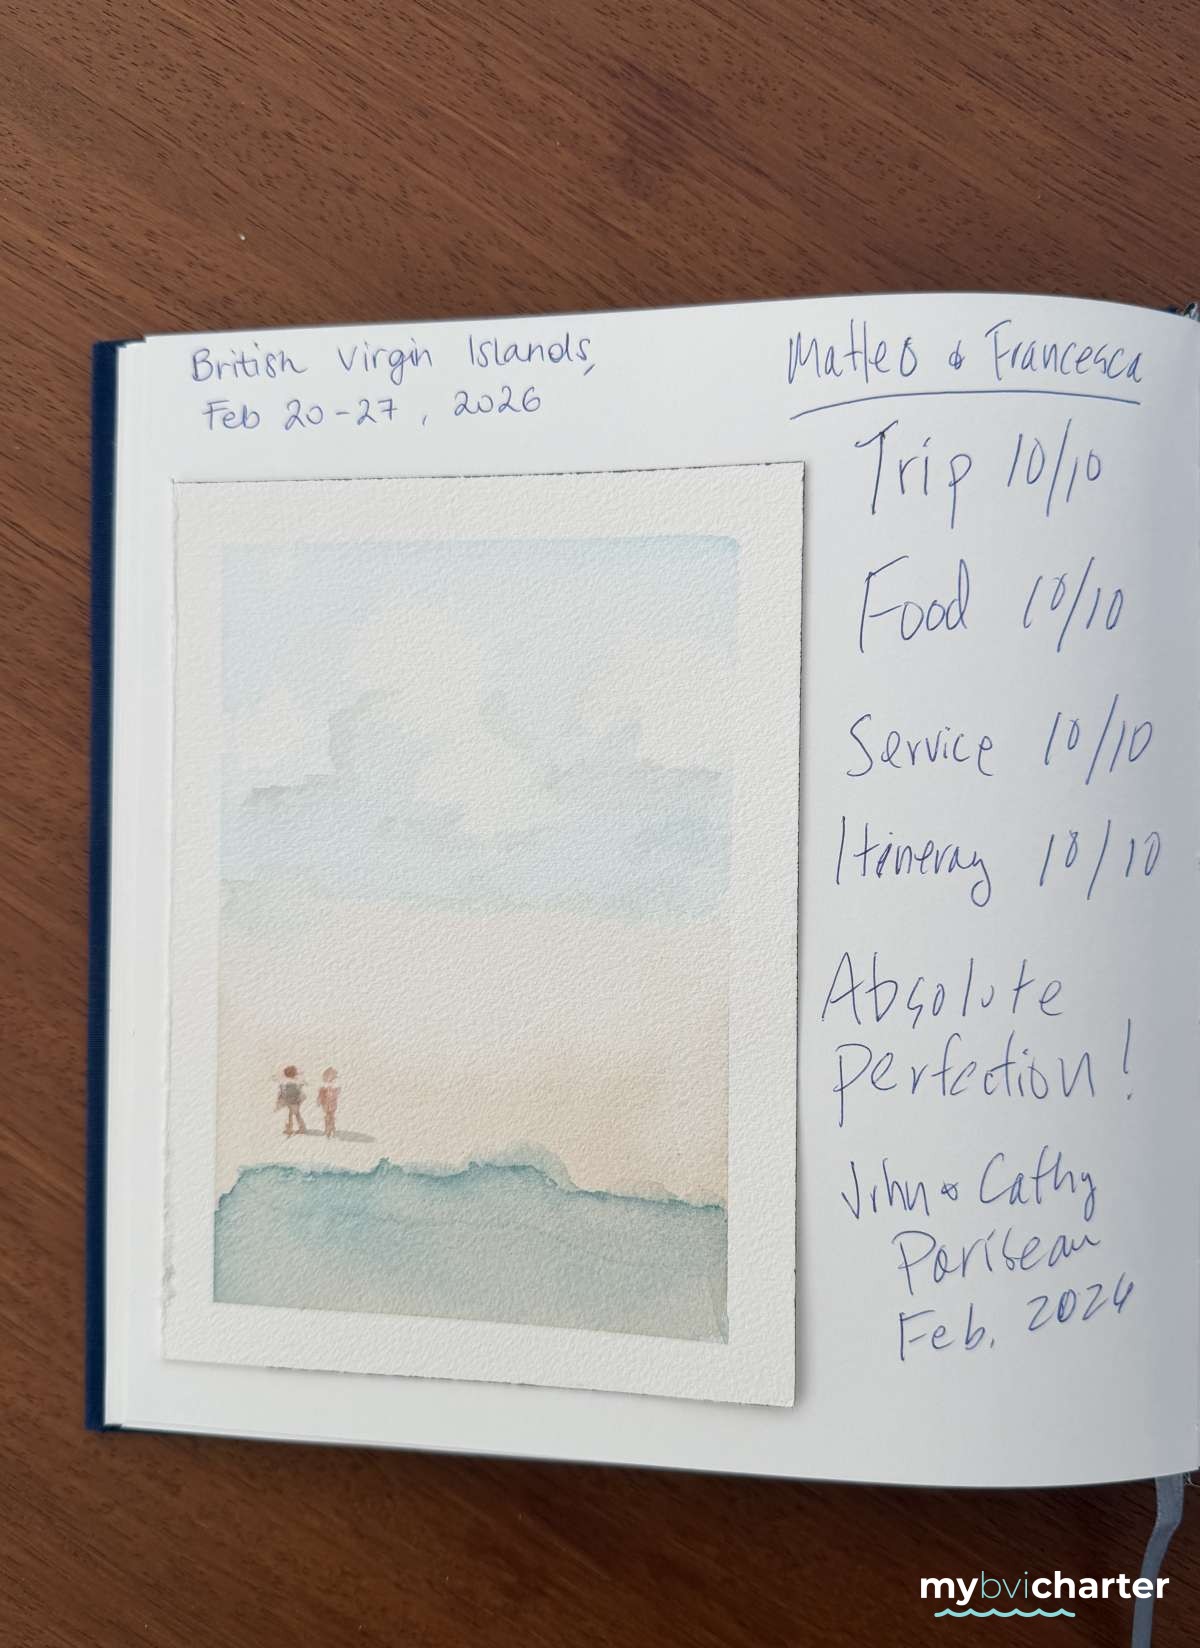 British Virgin Islands,
Feb 20-27, 2026
Matteo & Francesca
Trip 10/10
Food 10/10
Service 10/10
Itineray 10/10
Absolute
perfection!
John & Cathy
Pariseau
Feb. 2026
mybvicharter